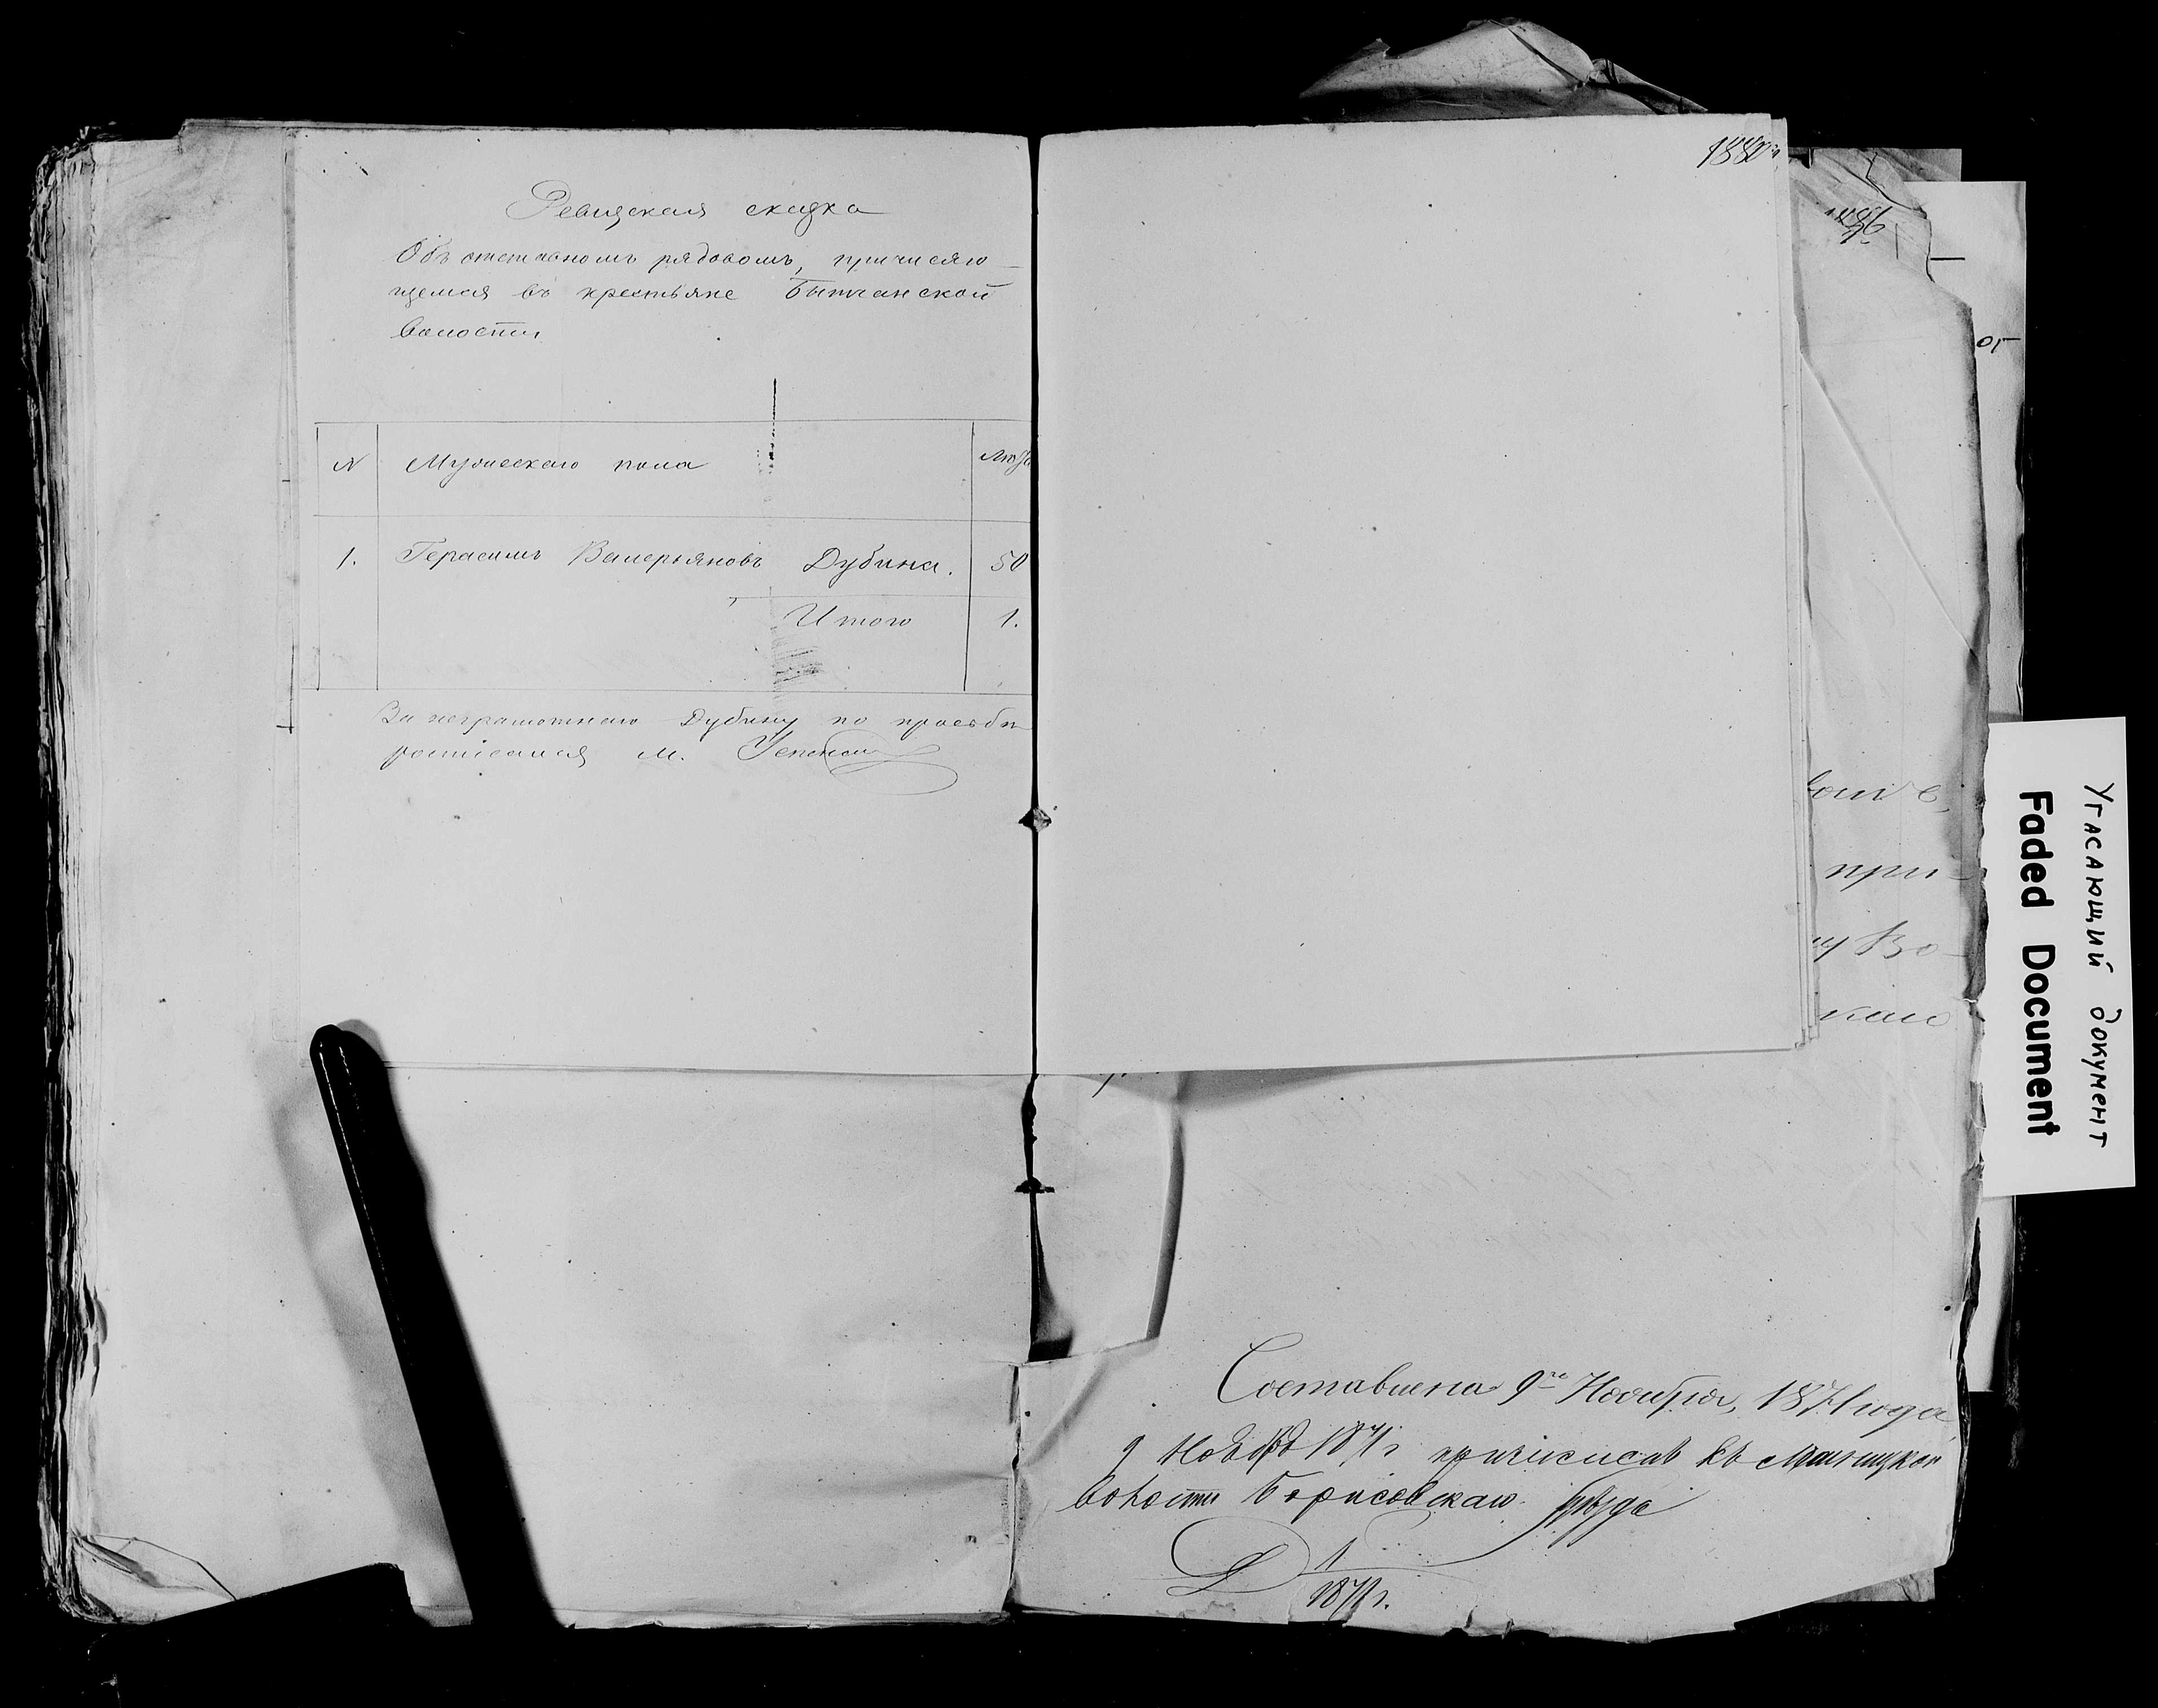 Ревизская сказка
Объ отставномъ рядовомъ, причисляю-
щемся въ крестьяне Бытчанской
волости
N Мужескаго пола Лѣта
1. Герасимъ Валерьяновъ Дубина. 50
Итого 1.
За неграмотнаго Дубину по просьбѣ
росписался М.
1880
1886
от
при-
Во-
каго
Составлена 9го Ноября 1871 года
9 Ноября 1871 г причисленъ къ
волости Борисовскаго уѣзда
1
1871 г.
Угасающий документ
Faded Document